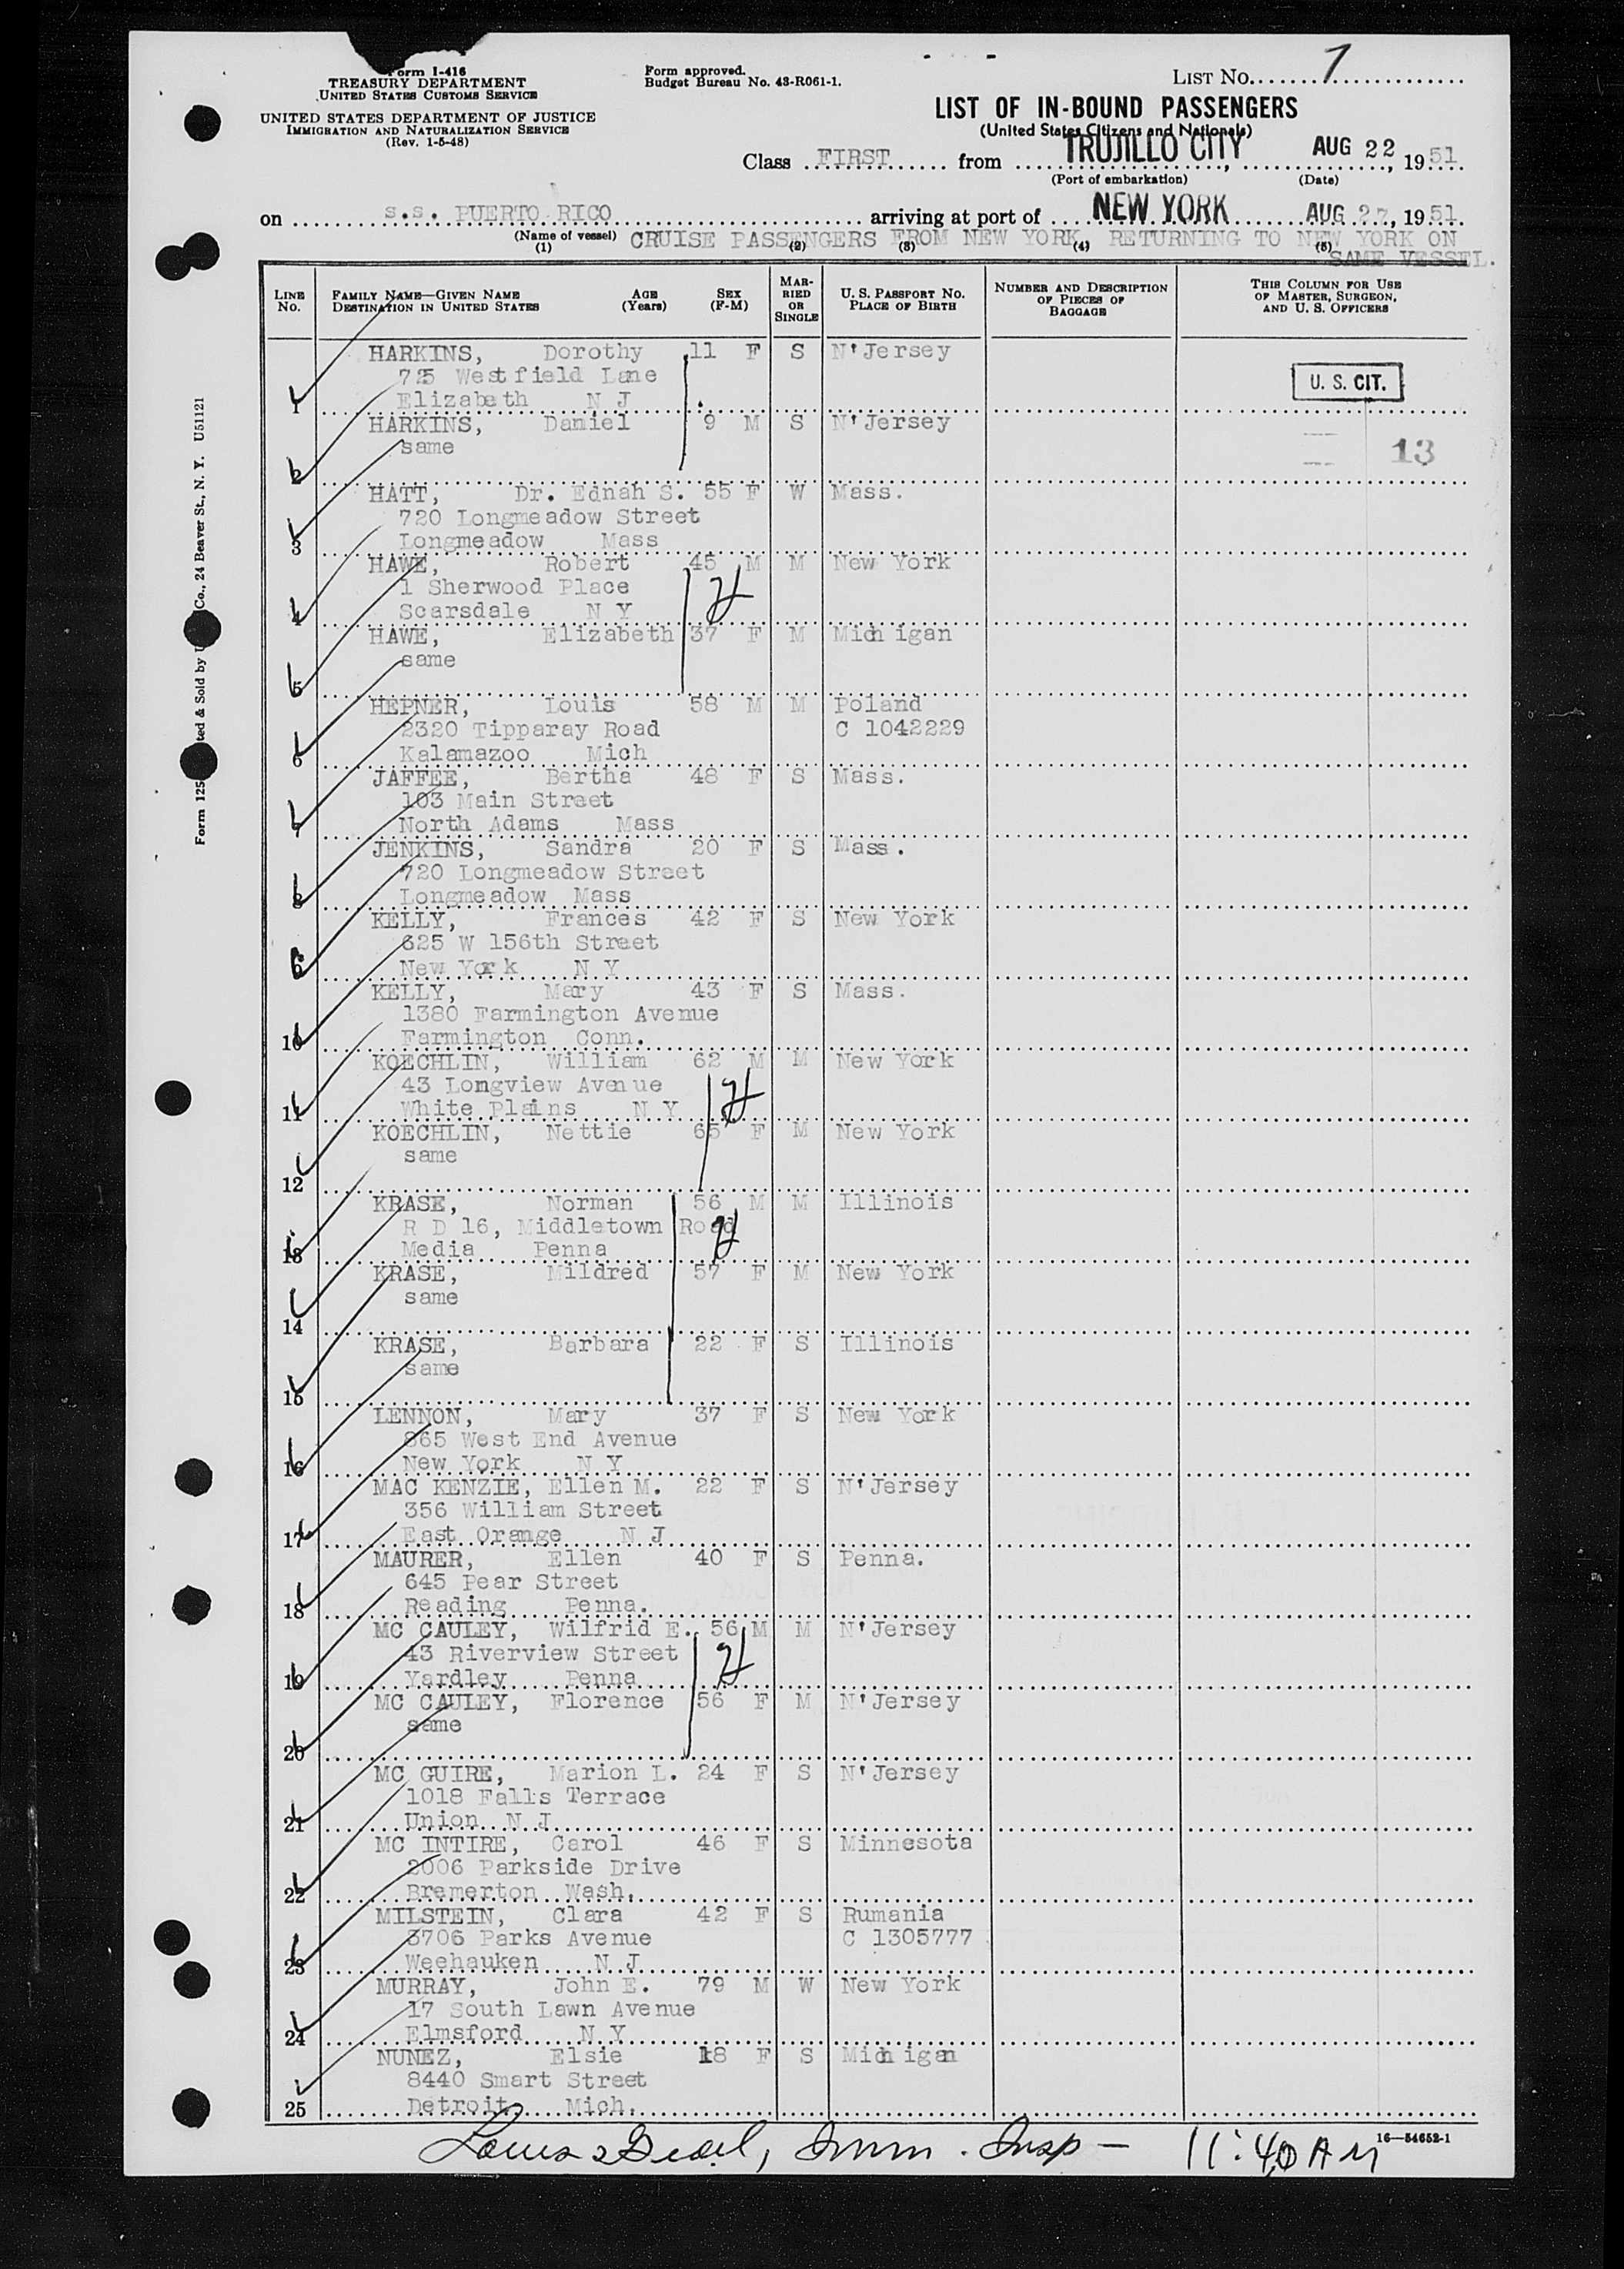 Form I-416
TREASURY DEPARTMENT
UNITED STATES CUSTOMS SERVICE
UNITED STATES DEPARTMENT OF JUSTICE
IMMIGRATION AND NATURALIZATION SERVICE
(Rev. 1-5-48)
Form approved.
Budget Bureau No. 43-R061-1.
LIST No. 7
LIST OF IN-BOUND PASSENGERS
(United States Citizens and Nationals)
Class FIRST from TRUJILLO CITY, AUG 22, 1951
(Port of embarkation) (Date)
on s.s. PUERTO RICO arriving at port of NEW YORK AUG 27, 1951.
(Name of vessel)
(1) (2) (3) (4) (5)
CRUISE PASSENGERS FROM NEW YORK, RETURNING TO NEW YORK ON
SAME VESSEL.
LINE No. FAMILY NAME—GIVEN NAME DESTINATION IN UNITED STATES AGE (Years) SEX (F-M) MARRIED OR SINGLE U. S. PASSPORT No. PLACE OF BIRTH NUMBER AND DESCRIPTION OF PIECES OF BAGGAGE THIS COLUMN FOR USE OF MASTER, SURGEON, AND U. S. OFFICERS
HARKINS, Dorothy 11 F S N'Jersey
725 Westfield Lane
U. S. CIT.
1 Elizabeth N J
HARKINS, Daniel 9 M S N'Jersey
same
13
2
HATT, Dr. Ednah S. 55 F W Mass.
720 Longmeadow Street
3 Longmeadow Mass
HAWE, Robert 45 M M New York
1 Sherwood Place
4 Scarsdale N Y
HAWE, Elizabeth 37 F M Michigan
same
5
HEPNER, Louis 58 M M Poland
2320 Tipparay Road C 1042229
6 Kalamazoo Mich
JAFFEE, Bertha 48 F S Mass.
103 Main Street
7 North Adams Mass
JENKINS, Sandra 20 F S Mass.
720 Longmeadow Street
8 Longmeadow Mass
KELLY, Frances 42 F S New York
625 W 156th Street
9 New York N Y
KELLY, Mary 43 F S Mass.
1380 Farmington Avenue
10 Farmington Conn.
KOECHLIN, William 62 M M New York
43 Longview Avenue
11 White Plains N Y
KOECHLIN, Nettie 65 F M New York
same
12
KRASE, Norman 56 M M Illinois
R D 16, Middletown Road
13 Media Penna
KRASE, Mildred 57 F M New York
same
14
KRASE, Barbara 22 F S Illinois
same
15
LENNON, Mary 37 F S New York
865 West End Avenue
16 New York N Y
MAC KENZIE, Ellen M. 22 F S N'Jersey
356 William Street
17 East Orange N J
MAURER, Ellen 40 F S Penna.
645 Pear Street
18 Reading Penna.
MC CAULEY, Wilfrid E. 56 M M N'Jersey
43 Riverview Street
19 Yardley Penna
MC CAULEY, Florence 56 F M N'Jersey
same
20
MC GUIRE, Marion L. 24 F S N'Jersey
1018 Falls Terrace
21 Union N J
MC INTIRE, Carol 46 F S Minnesota
2006 Parkside Drive
22 Bremerton Wash.
MILSTEIN, Clara 42 F S Rumania
3706 Parks Avenue C 1305777
23 Weehauken N J
MURRAY, John E. 79 M W New York
17 South Lawn Avenue
24 Elmsford N Y
NUNEZ, Elsie 18 F S Michigan
8440 Smart Street
25 Detroit Mich.
16—54652-1
Louis Imm. Insp — 11:40 AM
Form 125 ted & Sold by U Co., 24 Beaver St., N. Y. U51121